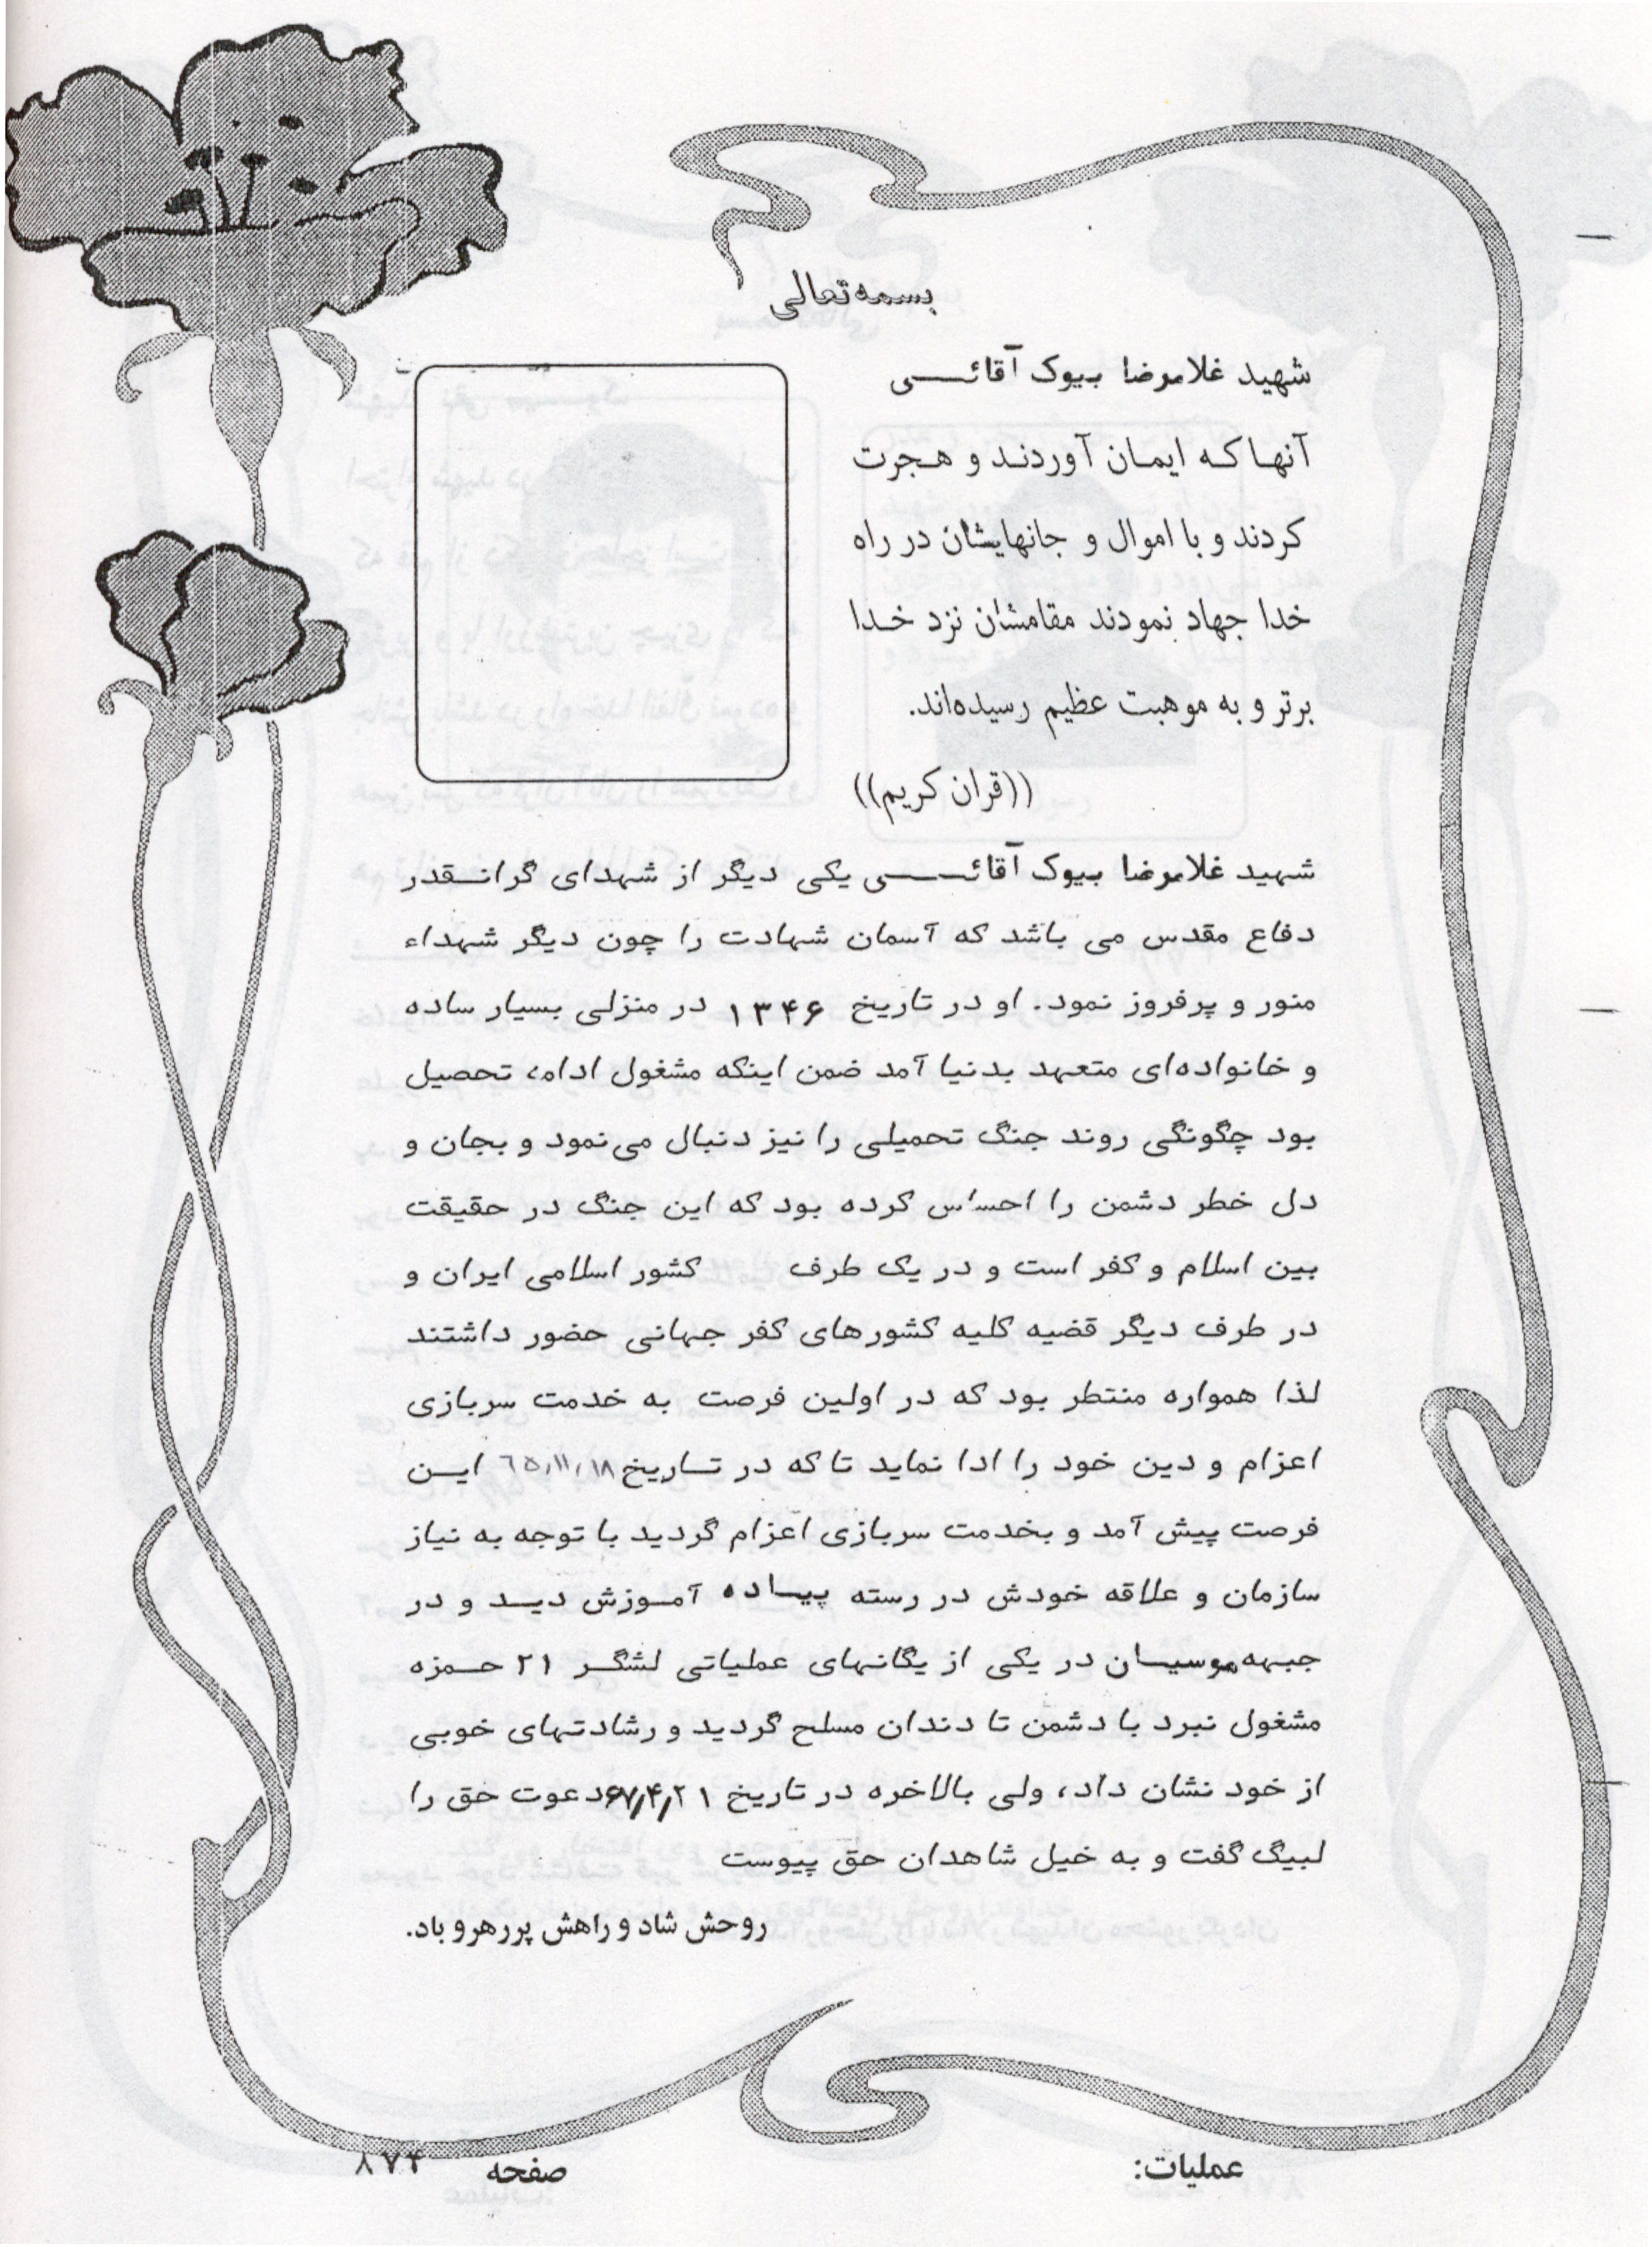 بسمه تعالی
شهید غلامرضا بیوک آقائی
آنها که ایمان آوردند و هجرت
کردند و با اموال و جانهایشان در راه
خدا جهاد نمودند مقامشان نزد خدا
برتر و به موهبت عظیم رسیده‌اند.
((قران کریم))
شهید غلامرضا بیوک آقائی یکی دیگر از شهدای گرانقدر
دفاع مقدس می باشد که آسمان شهادت را چون دیگر شهداء
منور و پرفروز نمود. او در تاریخ ۱۳۴۶ در منزلی بسیار ساده
و خانواده‌ای متعهد بدنیا آمد ضمن اینکه مشغول ادامه تحصیل
بود چگونگی روند جنگ تحمیلی را نیز دنبال می‌نمود و بجان و
دل خطر دشمن را احساس کرده بود که این جنگ در حقیقت
بین اسلام و کفر است و در یک طرف کشور اسلامی ایران و
در طرف دیگر قضیه کلیه کشورهای کفر جهانی حضور داشتند
لذا همواره منتطر بود که در اولین فرصت به خدمت سربازی
اعزام و دین خود را ادا نماید تا که در تاریخ ٦٥/١١/١٨ این
فرصت پیش آمد و بخدمت سربازی اعزام گردید با توجه به نیاز
سازمان و علاقه خودش در رسته پیاده آموزش دید و در
جبهه موسیان در یکی از یگانهای عملیاتی لشگر ۲۱ حمزه
مشغول نبرد با دشمن تا دندان مسلح گردید و رشادتهای خوبی
از خود نشان داد، ولی بالاخره در تاریخ ۶۷/۴/۲۱ دعوت حق را
لبیگ گفت و به خیل شاهدان حق پیوست
روحش شاد و راهش پررهرو باد.
عملیات: صفحه ۸۷۴